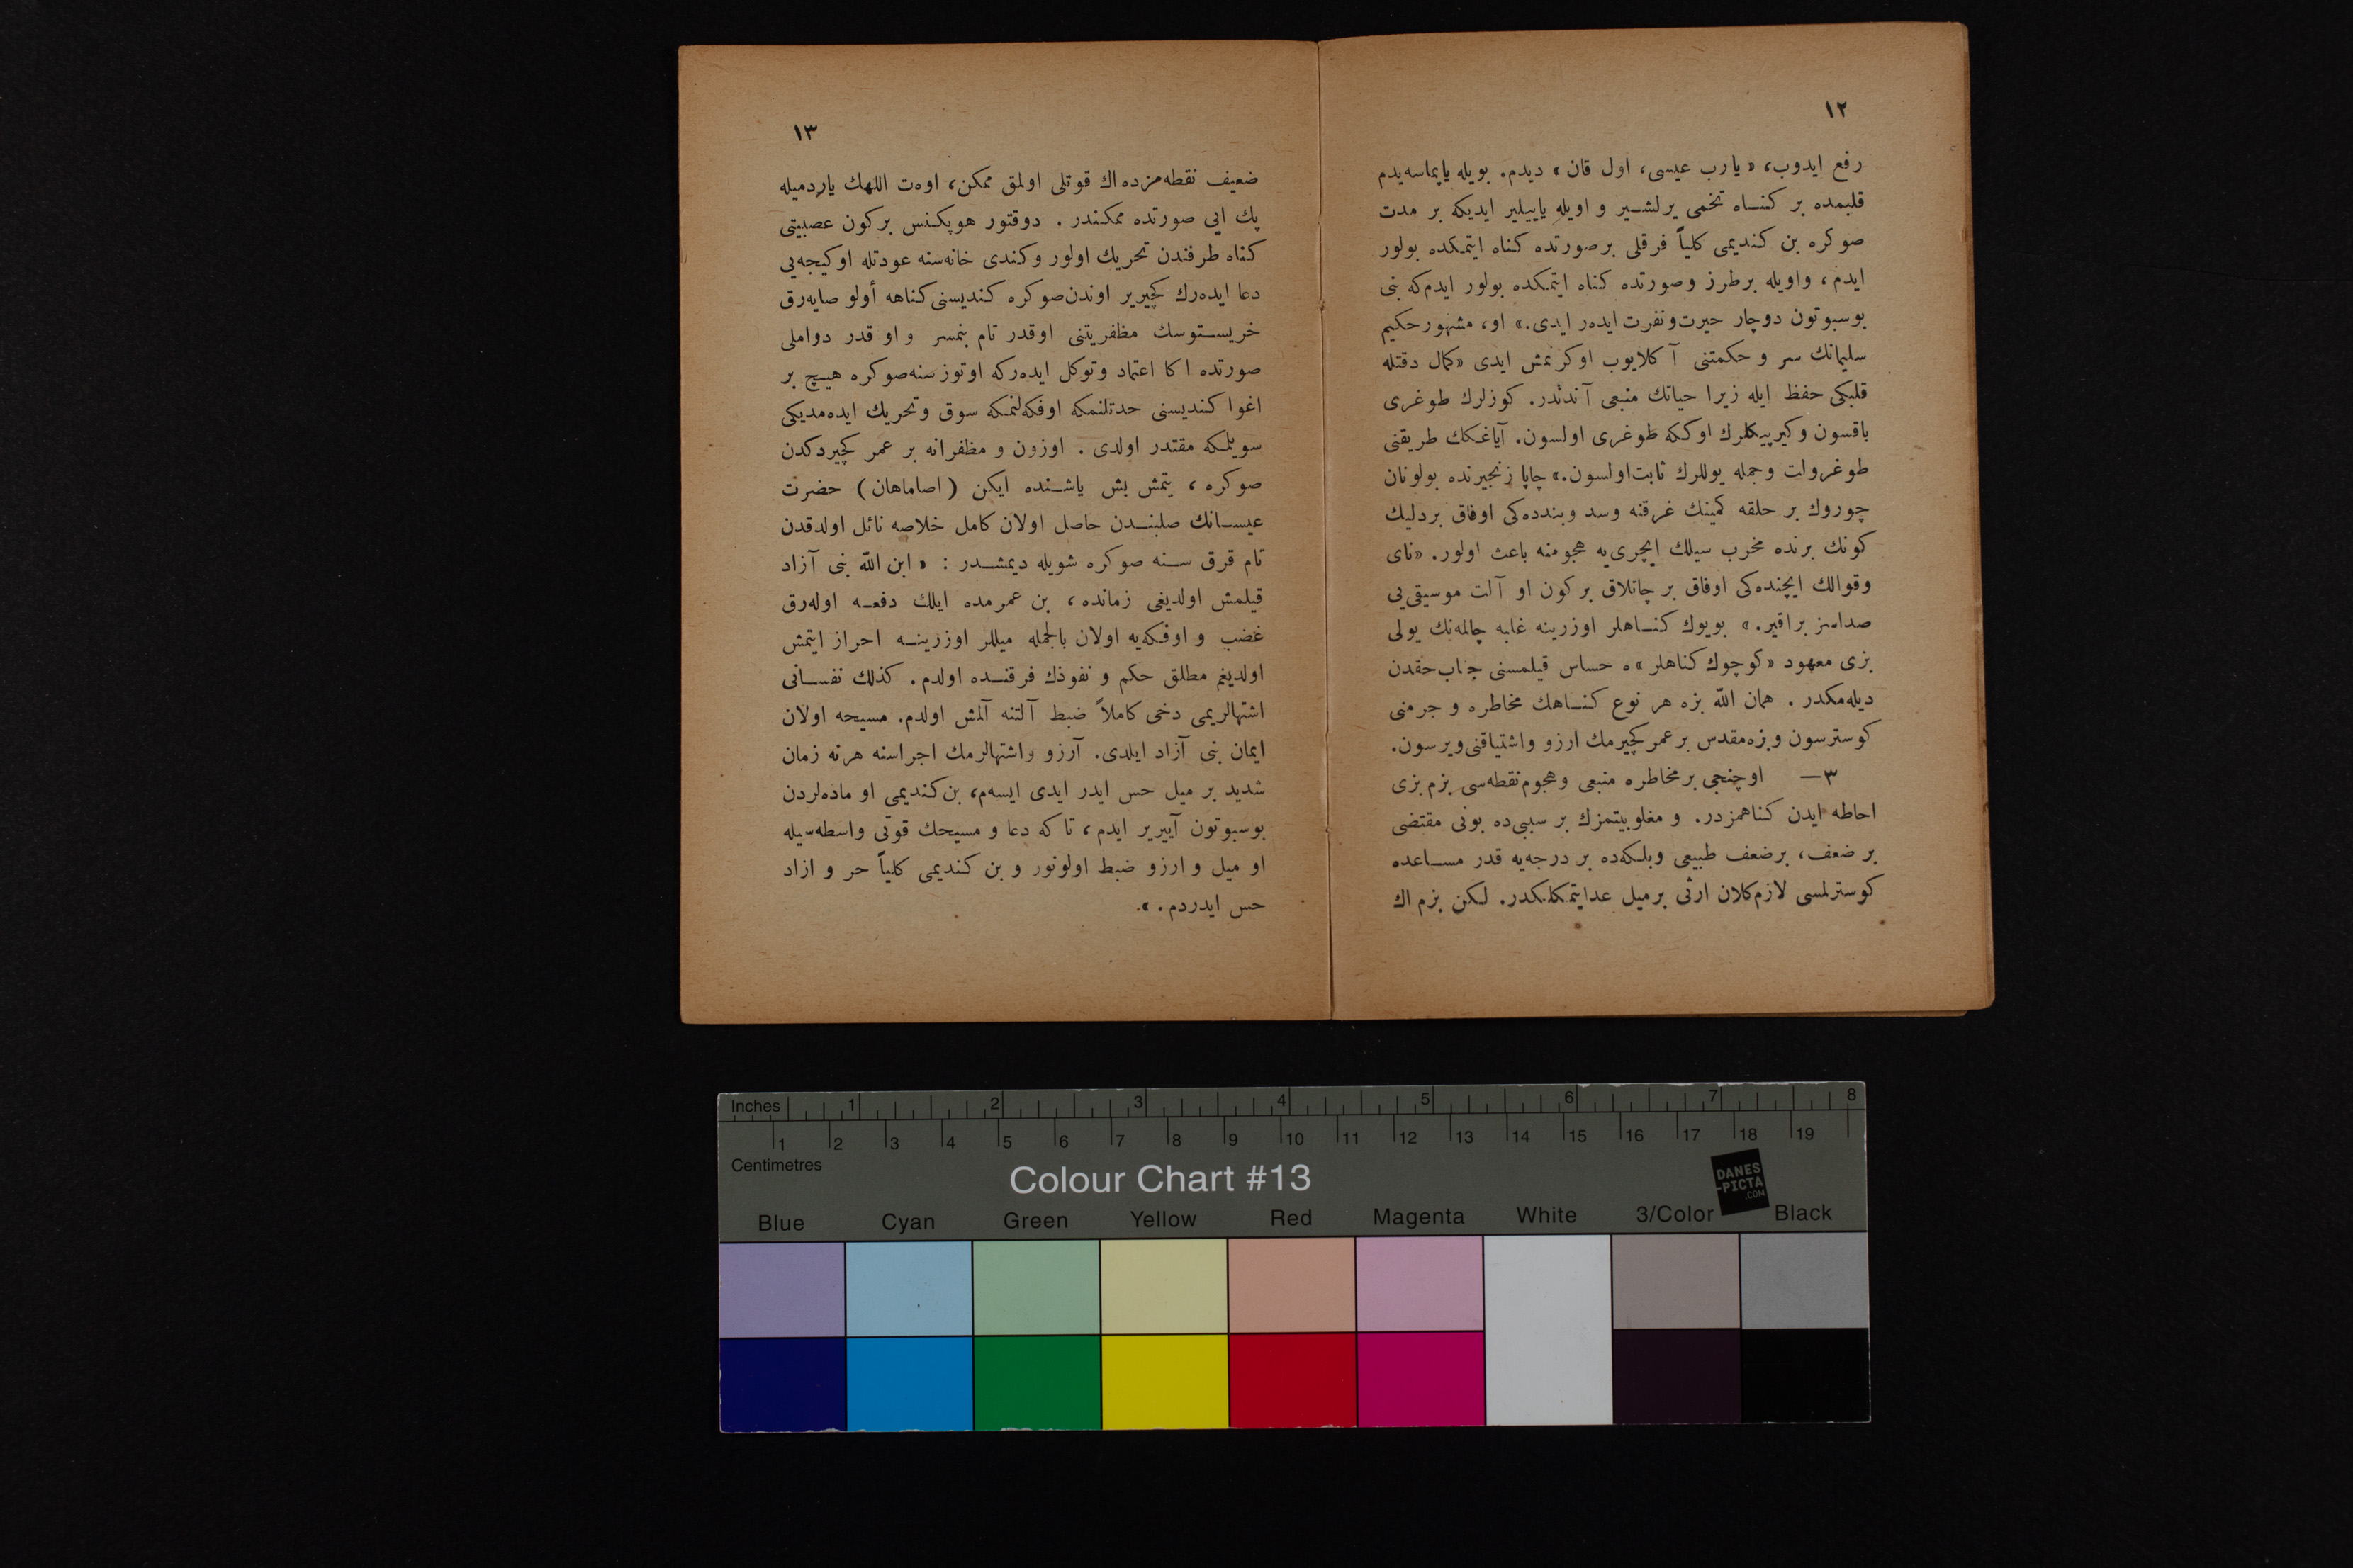 ١٢
رفع ایدوب، «یارب عیسی، اول قان» دیدم. بویله یاپماسه‌یدم
قلبمده بر كنـاه تخمی یرلشـیر و اویله یاپیلیر ایدیكه بر مدت
صوكره بن كندیمی كلیاً فرقلی برصورتده كناه ایتمكده بولور
ایدم، واویله برطرز وصورتده كناه ایتمكده بولور ایدم‌كه بنی
بوسبوتون دوچار حیرت‌ونفرت ایده‌ر ایدی.» او، مشهورحكیم
سلیمانك سر و حكمتنی آكلایوب اوكرنمش ایدی «كمال دقتله
قلبكی حفظ ایله زیرا حیاتك منبعی آندندر. كوزلرك طوغری
باقسون وكیرپیكلرك اوككه طوغری اولسون. آیاغكك طریقنی
طوغروات وجمله یوللرك ثابت‌اولسون.» چاپا زنجیرنده بولونان
چوروك بر حلقه كمینك غرقنه وسد وبندده‌كی اوفاق بردلیك
كونك برنده مخرب سیلك ایچری‌یه هجومنه باعث اولور. «نای
وقوالك ایچنده‌كی اوفاق بر چاتلاق بركون او آلت موسیقی‌یی
صداسز براقیر.» بویوك كنـاهلر اوزرینه غلبه چالمه‌نك یولی
بزی معهود «كوچوك كناهلر»ه حساس قیلمسنی جناب‌حقدن
دیله‌مكدر . همان اللّه بزه هر نوع كنـاهك مخاطره و جرمنی
كوسترسون وبزه‌مقدس برعمركچیرمك ارزو واشتیاقنی‌ویرسون.
٣— اوچنجی برمخاطره منبعی وهجوم‌نقطه‌سی بزم بزی
احاطه ایدن كناهمزدر. و مغلوبیتمزك بر سببی‌ده بونی مقتضی
بر ضعف، برضعف طبیعی وبلكه‌ده بر درجه‌یه قدر مسـاعده
كوسترلمسی لازم‌كلان ارثی برمیل عدایتمكلكمزدر. لكن بزم اك
١٣
ضعیف نقطه‌مزده اك قوتلی اولمق ممكن، اوه‌ت اللهك یاردمیله
پك ایی صورتده ممكندر . دوقتور هوپكنس بركون عصبیتی
كناه طرفندن تحریك اولور وكندی خانه‌سنه عودتله اوكیجه‌یی
دعا ایده‌رك كچیریر اوندن‌صوكره كندیسنی‌كناهه أولو صایه‌رق
خریسـتوسك مظفریتنی اوقدر تام بنمسر و او قدر دواملی
صورتده اكا اعتماد وتوكل ایده‌ركه اوتوز سنه‌صوكره هیـچ بر
اغوا كندیسنی حدتلنمكه اوفكه‌لنمكه سوق وتحریك ایده‌مدیكی
سویلمكه مقتدر اولدی . اوزون و مظفرانه بر عمر كچیردكدن
صوكره ، یتمش بش یاشـنده ایكن (اصاماهان) حضرت
عیسـانك صلبنـدن حاصل اولان كامل خلاصه نائل اولدقدن
تام قرق سـنه صوكره شویله دیمشـدر : « ابن اللّه بنی آزاد
قیلمش اولدیغی زمانده ، بن عمرمده ایلك دفعـه اوله‌رق
غضب و اوفكه‌یه اولان بالجمله میللر اوزرینـه احراز ایتمش
اولدیغم مطلق حكم و نفوذك فرقنـده اولدم. كذلك نفسـانی
اشتهالریمی دخی كاملاً ضبط آلتنه آلمش اولدم. مسیحه اولان
ایمان بنی آزاد ایلدی. آرزو واشتهالرمك اجراسنه هرنه زمان
شدید بر میل حس ایدر ایدی ایسه‌م، بن‌كندیمی او ماده‌لردن
بوسبوتون آییریر ایدم، تا كه دعا و مسیحك قوتی واسطه‌سیله
او میل و ارزو ضبط اولونور و بن كندیمی كلیاً حر و ازاد
حس ایدردم. ».
Inches 1 2 3 4 5 6 7 8
1 2 3 4 5 6 7 8 9 10 11 12 13 14 15 16 17 18 19
Centimetres
Colour Chart #13
DANES
-PICTA
.COM
Blue Cyan Green Yellow Red Magenta White 3/Color Black